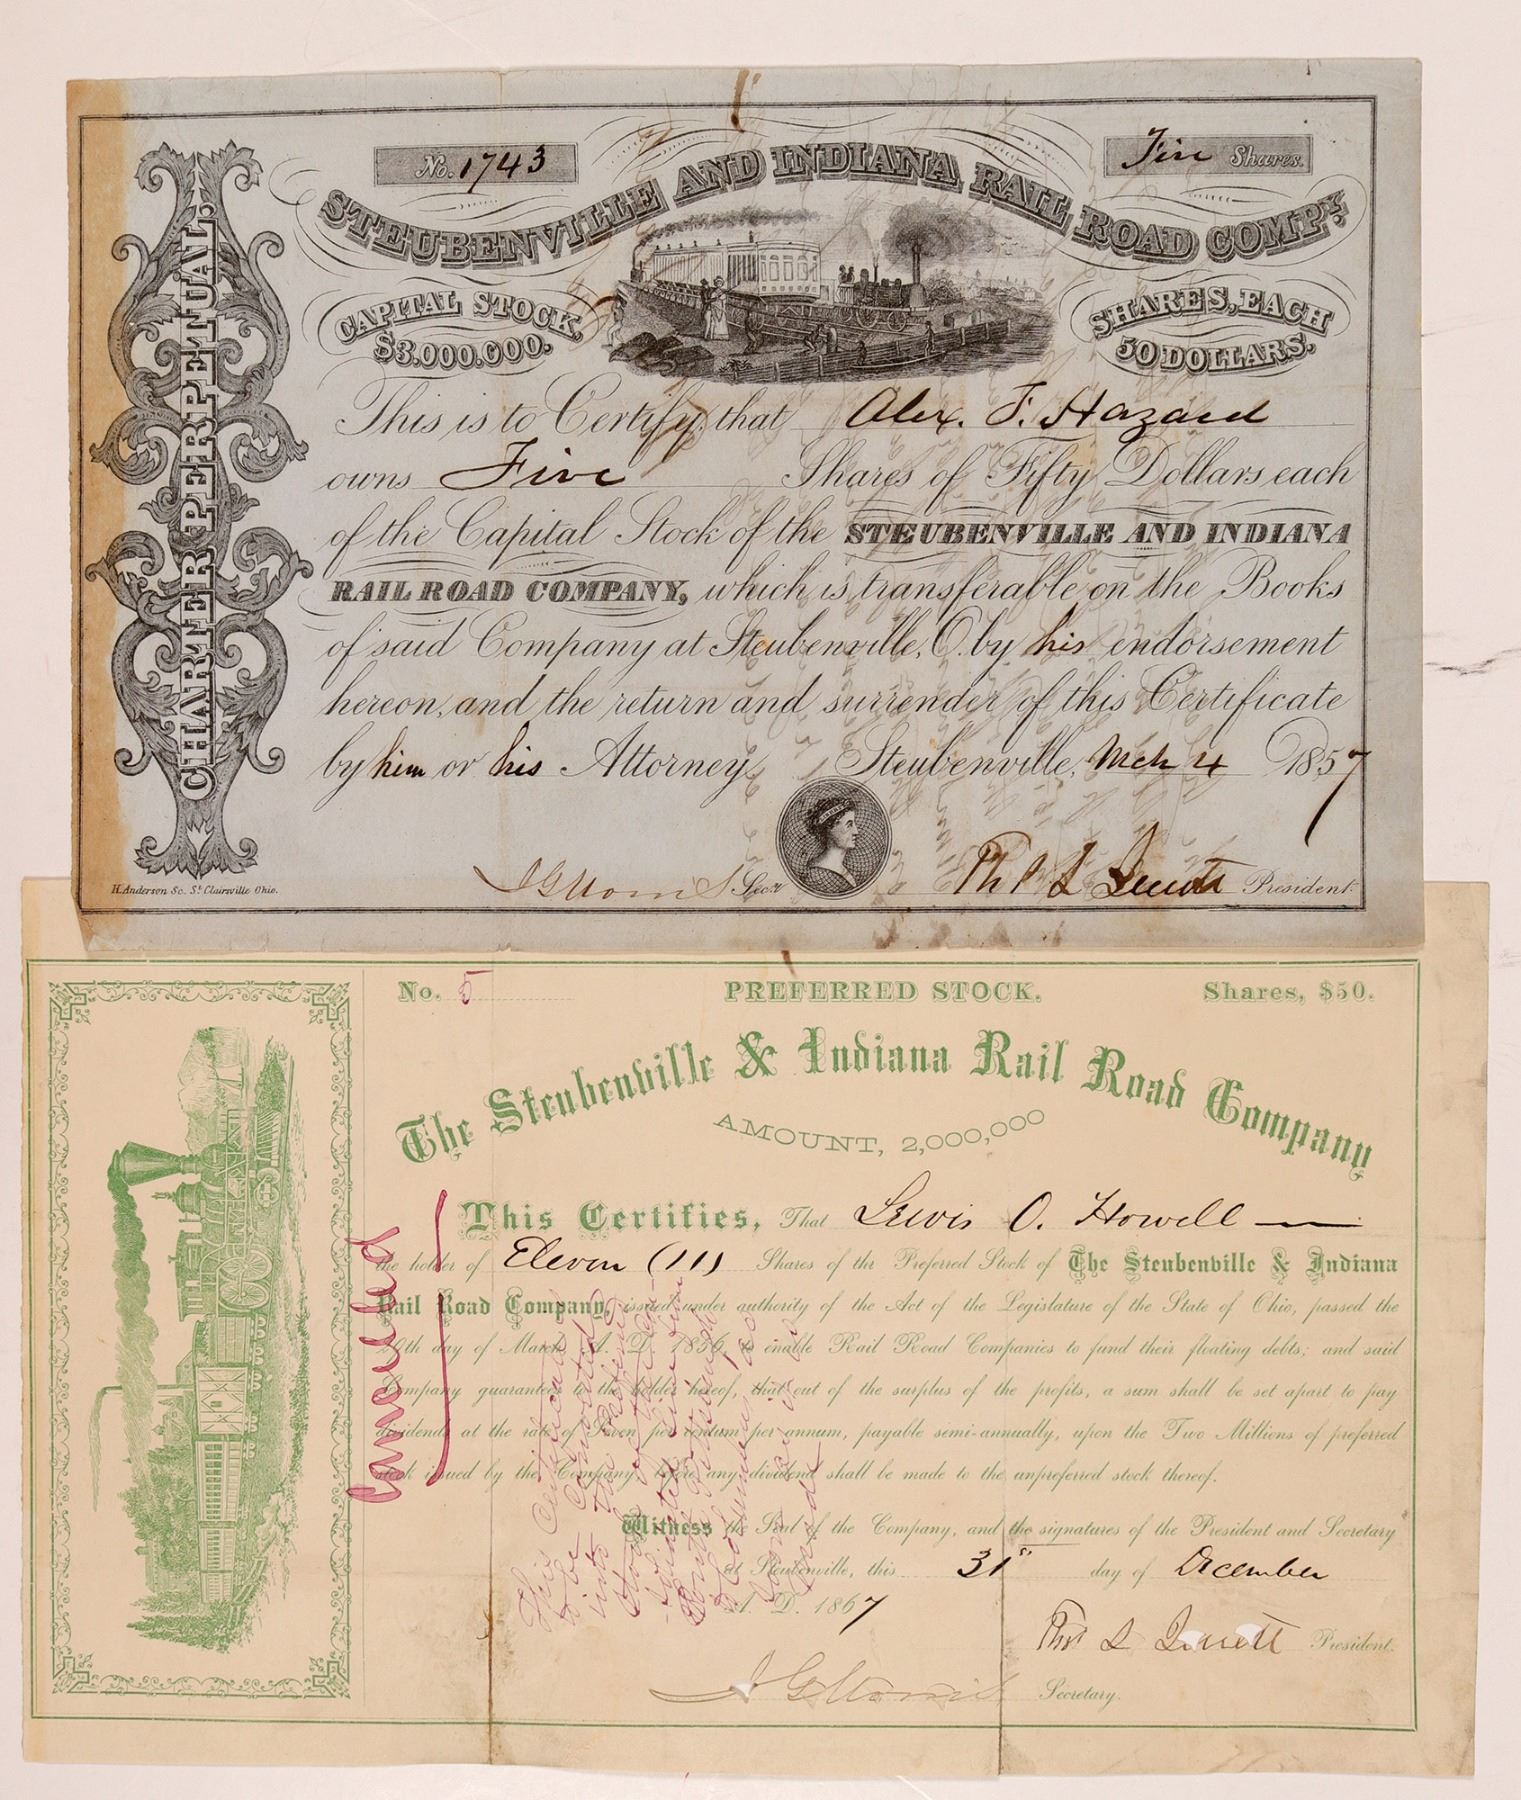 No. 1743
Five Shares.
STEUBENVILLE AND INDIANA RAIL ROAD COMPY.
CAPITAL STOCK
$3.000.000.
SHARES, EACH
50 DOLLARS.
CHARTER PERPETUAL.
This is to Certify, that Alex. F. Hazard
owns Five Shares of Fifty Dollars each
of the Capital Stock of the STEUBENVILLE AND INDIANA
RAIL ROAD COMPANY, which is transferable on the Books
of said Company at Steubenville, O. by his endorsement
hereon, and the return and surrender of this Certificate
by him or his Attorney Steubenville, Mch 4 1857
J G Morris Secr
President
H. Anderson Sc. St. Clairsville Ohio.
No. 5
PREFERRED STOCK.
Shares, $50.
The Steubenville & Indiana Rail Road Company
AMOUNT, 2,000,000
This Certifies, That Lewis O. Howell
the holder of Eleven (11) Shares of the Preferred Stock of The Steubenville & Indiana
Rail Road Company, issued under authority of the Act of the Legislature of the State of Ohio, passed the
day of March A. D. 1856, to enable Rail Road Companies to fund their floating debts; and said
Company guarantees to the holder hereof, that out of the surplus of the profits, a sum shall be set apart to pay
dividends at the rate of Seven per centum per annum, payable semi-annually, upon the Two Millions of preferred
stock issued by the Company before any dividend shall be made to the unpreferred stock thereof.
Witness the Seal of the Company, and the signatures of the President and Secretary
at Steubenville, this 31st day of December
A. D. 1867
President.
J G Morris Secretary.
Canceled
This Certificate
to be
into the